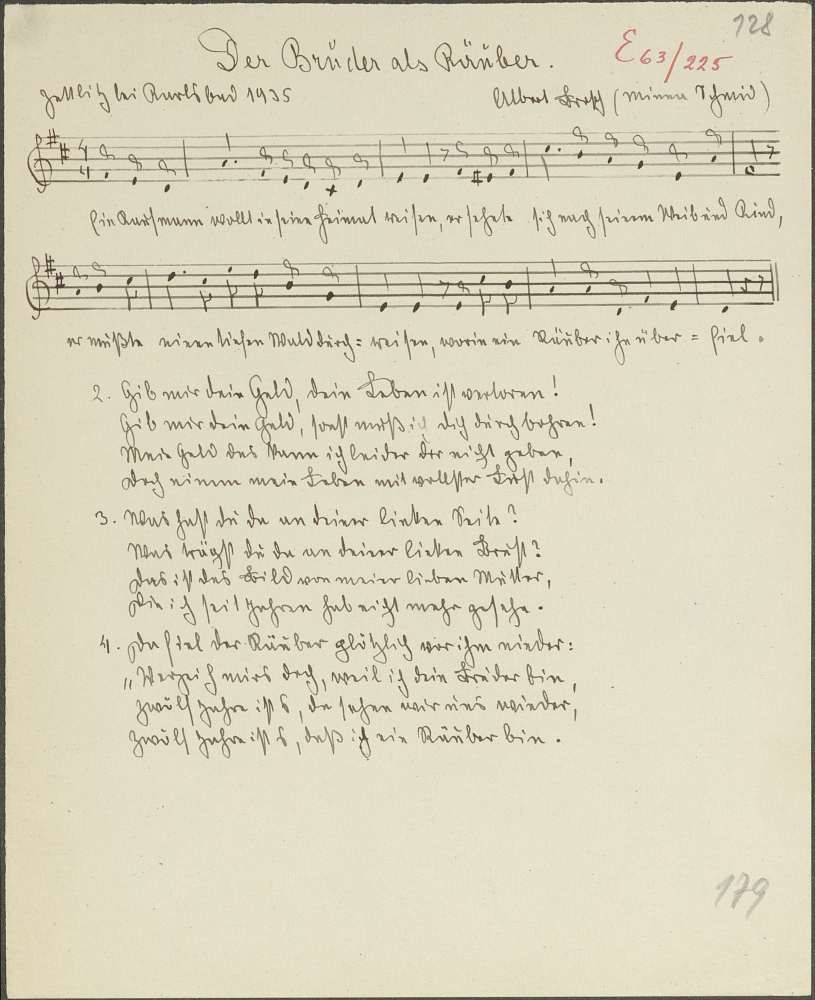 128
Der Bruder als Räuber.
E 63/225
Zettlitz bei Karlsbad 1935
Albert Brosch (Minna Schmid)
Ein Kaufmann wollt in seine Heimat reisen, er sehnte sich nach seinem Weib und Kind,
er mußte einen tiefen Wald durch= reisen, worin ein Räuber ihn über = fiel.
2. Gib mir dein Geld, dein Leben ist verloren!
Gib mir dein Geld, sonst muß ich dich durchbohren!
Mein Geld das kann ich leider dir nicht geben,
doch nimm mein Leben mit vollster Lust dahin.
3. Was hast du da an deiner linken Seite?
Was trägst du da an deiner linken Brust?
Das ist das Bild von meier lieben Mutter,
Die ich seit Jahren hab nicht mehr gesehn.
4. Da fiel der Räuber plötzlich vor ihm nieder:
„Verzeih mirs doch, weil ich dein Bruder bin,
zwölf Jahre ists, da sehen wir uns wieder,
zwölf Jahre ists, daß ich ein Räuber bin.
179